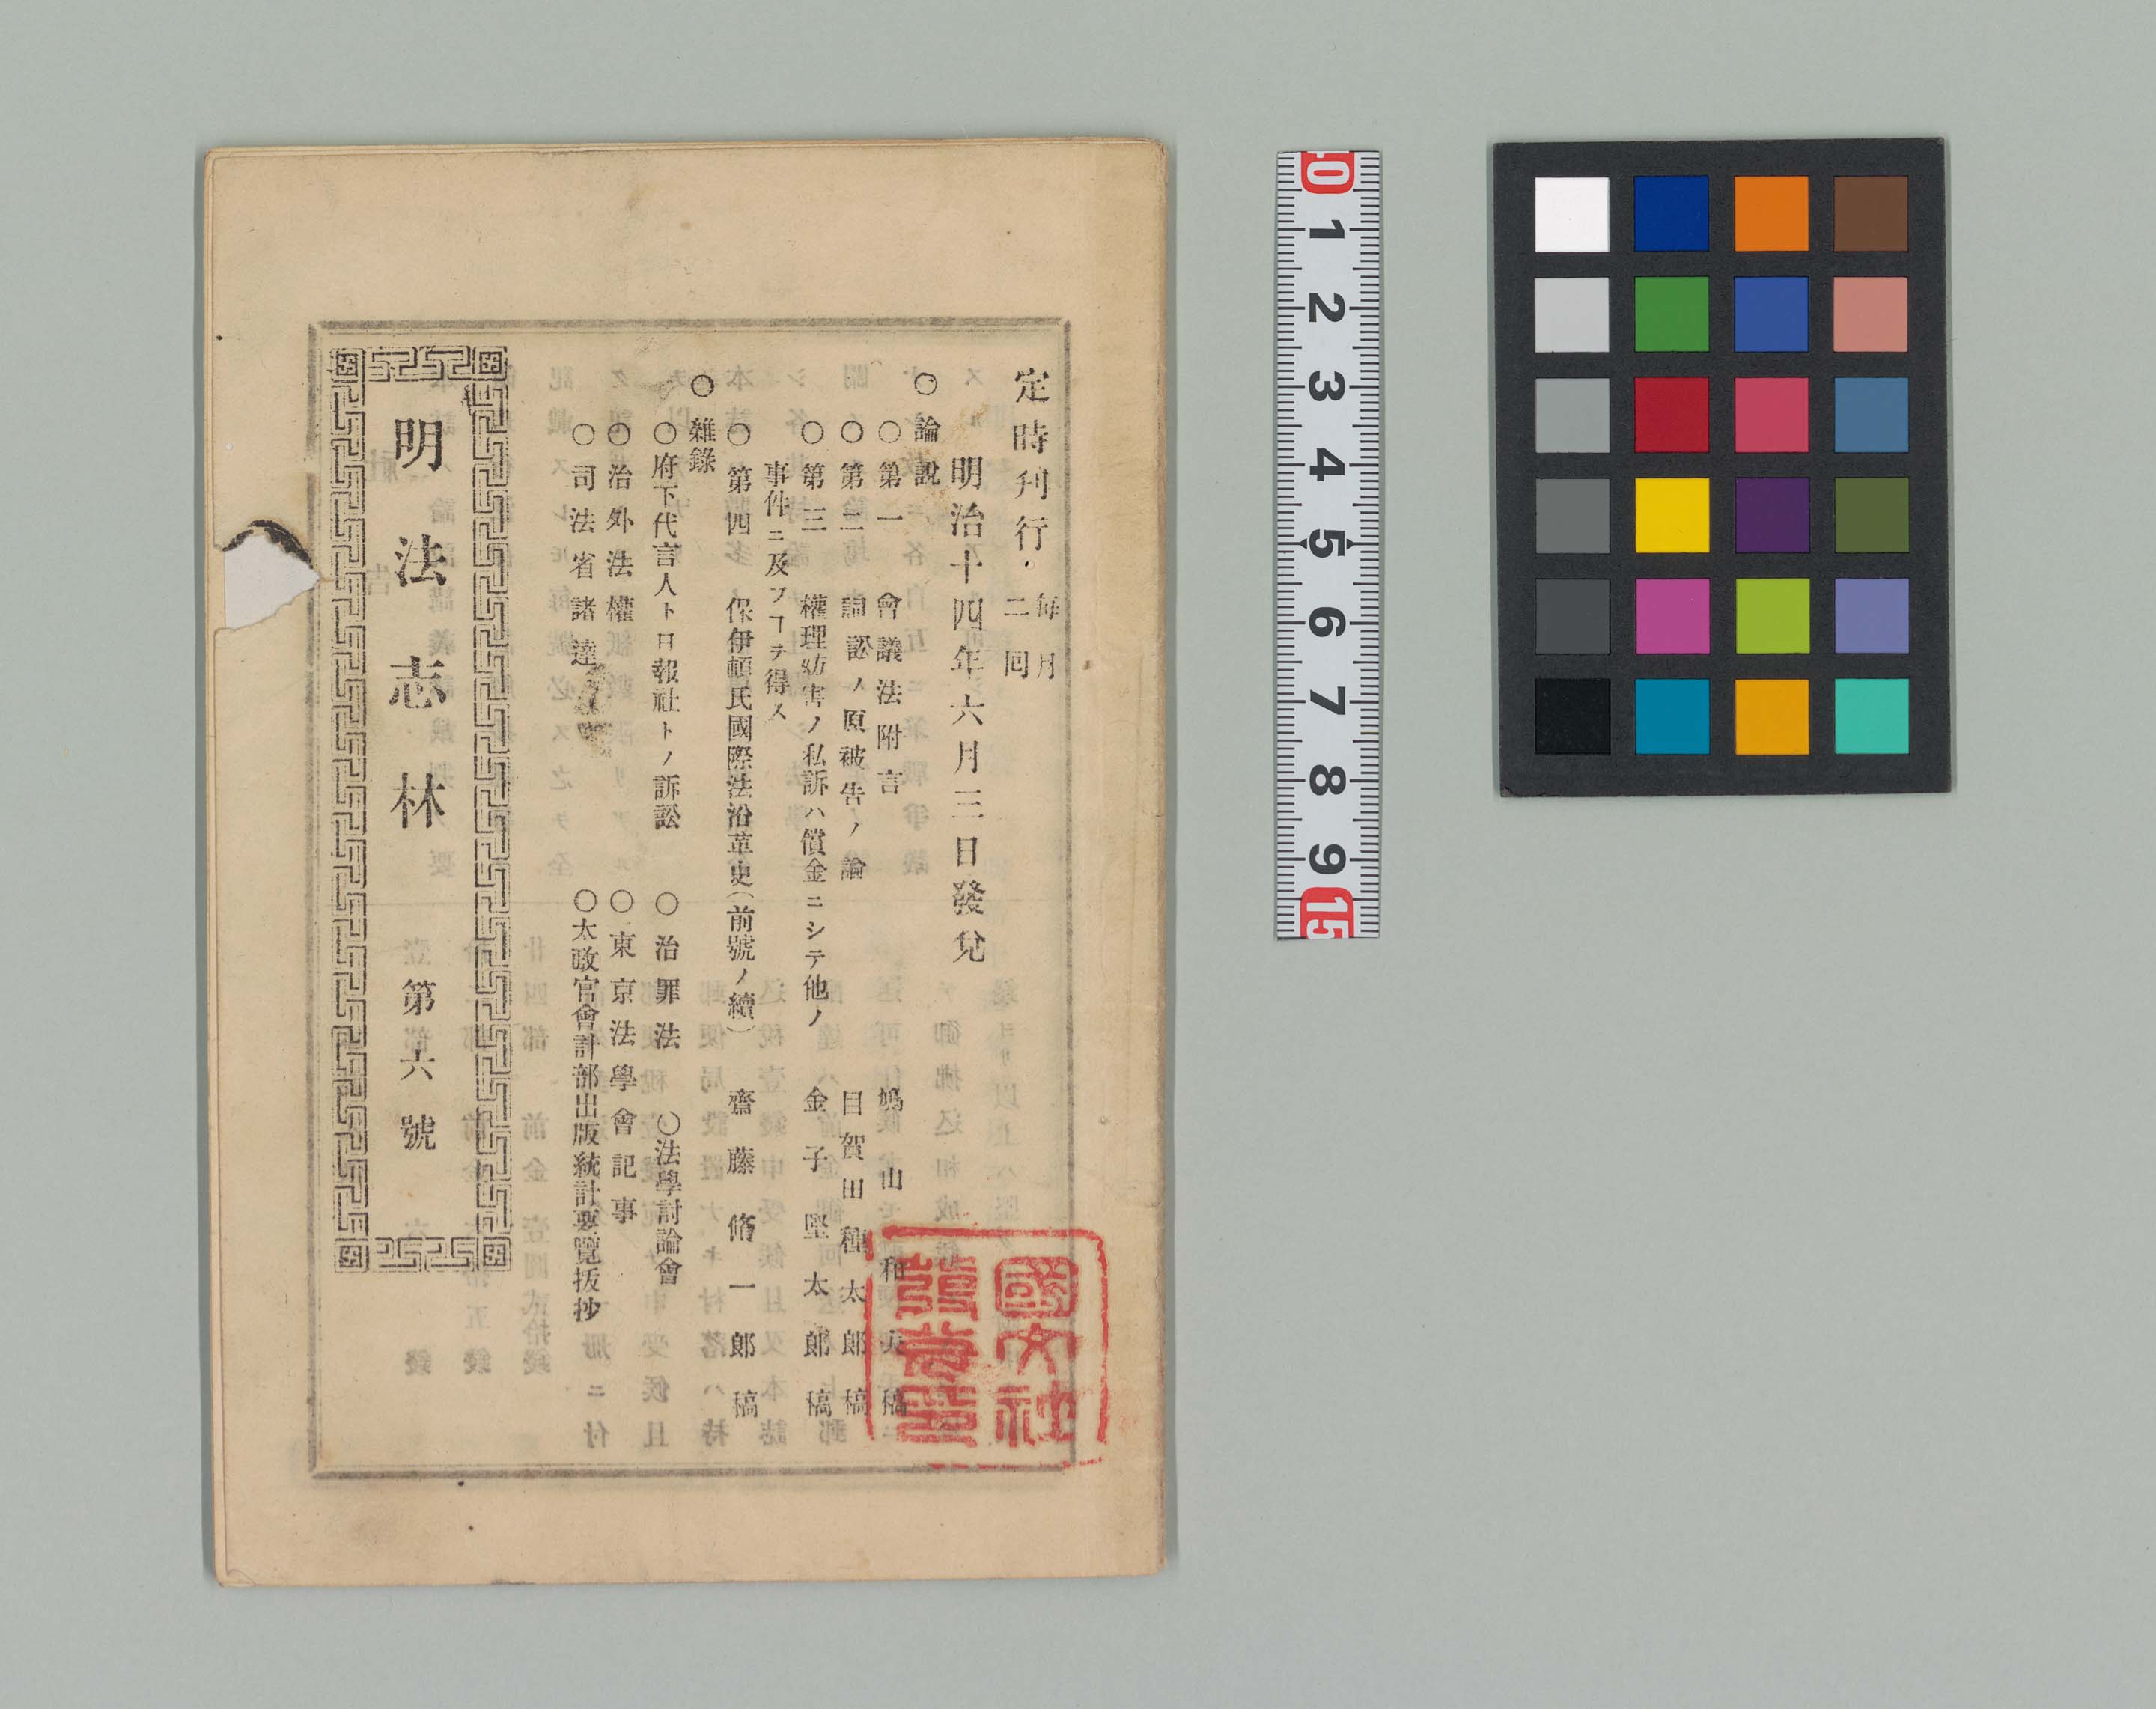 定時刊行・毎月二回
明治十四年六月三日發兌
○論說
○第一 會議法附言 鳩山和夫稿
○第二 詞訟ノ原被告ノ論 目賀田種太郎稿
○第三 權理妨害ノ私訴ハ償金ニシテ他ノ
事件ニ及フヿヲ得ス 金子堅太郎稿
○第四 保伊頓氏國際法沿革史(前號ノ續) 齋藤脩一郎稿
○雜錄
○府下代言人ト日報社トノ訴訟 ○治罪法 ○法學討論會
○治外法權 ○東京法學會記事
○司法省諸達 ○太政官會計部出版統計要覽抜抄
明法志林 第六號
國文社
10 1 2 3 4 5 6 7 8 9 15